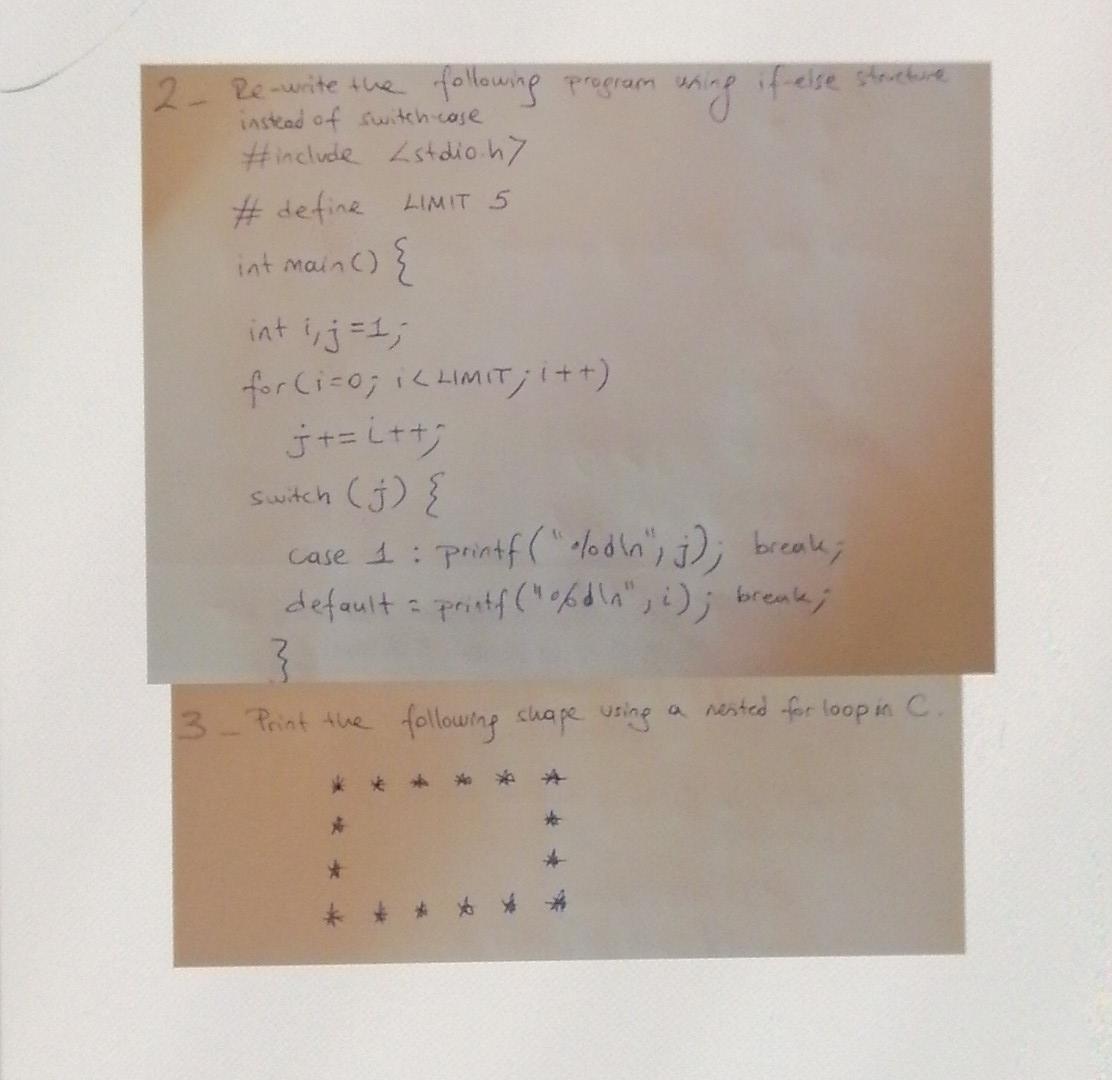 2- Re-write the following program using if-else structure
instead of switch-case
#include <stdio.h>
# define LIMIT 5
int main() {
int i,j=1;
for(i=0; i<LIMIT; i++)
j+= i++;
switch (j) {
case 1 : printf("%d\n", j); break;
default : printf("%d\n", i); break;
}
3- Print the following shape using a nested for loop in C.
* * * * * *
* *
* *
* * * * * *